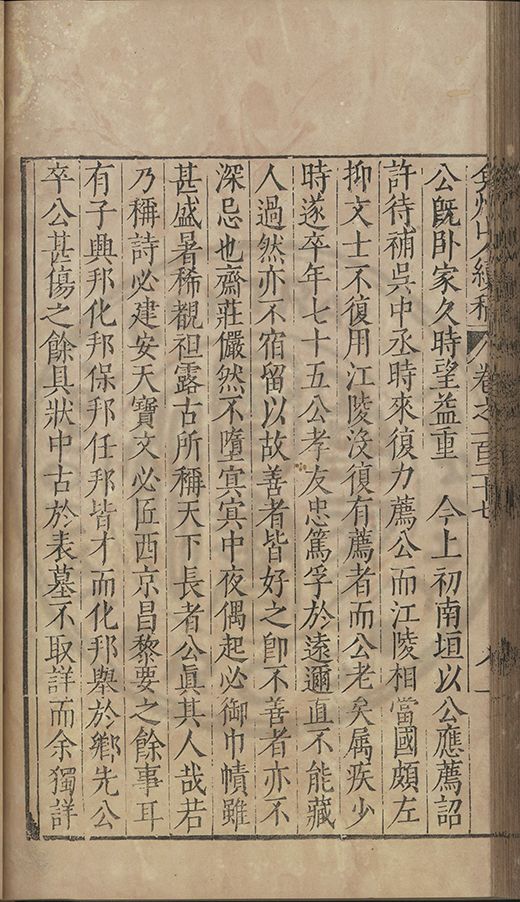 弇州山人續稿 卷之一百二十七
公旣臥家久時望益重 今上初南垣以公應薦詔
許待補吳中丞時來復力薦公而江陵相當國頗左
抑文士不復用江陵沒復有薦者而公老矣属疾少
時遂卒年七十五公孝友忠篤孚於遠邇直不能藏
人過然亦不宿留以故善者皆好之卽不善者亦不
深忌也齋莊儼然不墮㝠㝠中夜偶起必御巾幘雖
甚盛暑稀覩袒露古所稱天下長者公眞其人哉若
乃稱詩必建安天寶文必匠西京昌黎要之餘事耳
有子興邦化邦保邦任邦皆才而化邦舉於鄉先公
卒公甚傷之餘具狀中古於表墓不取詳而余獨詳